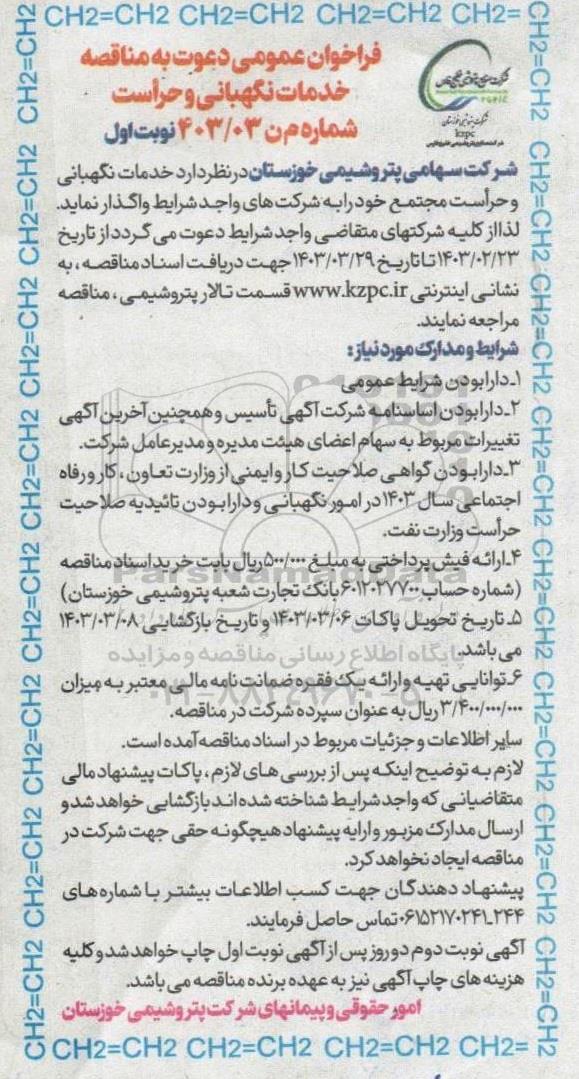 CH2=CH2 CH2=CH2 CH2=CH2 CH2=
فراخوان عمومی دعوت به مناقصه
خدمات نگهبانی و حراست
شماره م ن ۴۰۳/۰۳ نوبت اول
شرکت پتروشیمی خوزستان
kzpc
شرکت سهامی پتروشیمی خوزستان در نظر دارد خدمات نگهبانی
و حراست مجتمع خود را به شرکت های واجد شرایط واگذار نماید.
لذا از کلیه شرکتهای متقاضی واجد شرایط دعوت می گردد از تاریخ
۱۴۰۳/۰۲/۲۳ تا تاریخ ۱۴۰۳/۰۳/۲۹ جهت دریافت اسناد مناقصه، به
نشانی اینترنتی www.kzpc.ir قسمت تالار پتروشیمی، مناقصه
مراجعه نمایند.
شرایط و مدارک مورد نیاز:
۱ـ دارا بودن شرایط عمومی
۲ـ دارا بودن اساسنامه شرکت آگهی تأسیس و همچنین آخرین آگهی
تغییرات مربوط به سهام اعضای هیئت مدیره و مدیر عامل شرکت.
۳ـ دارا بودن گواهی صلاحیت کار و ایمنی از وزارت تعاون، کار و رفاه
اجتماعی سال ۱۴۰۳ در امور نگهبانی و دارا بودن تائیدیه صلاحیت
حراست وزارت نفت.
۴ـ ارائه فیش پرداختی به مبلغ ۵۰۰/۰۰۰ ریال بابت خرید اسناد مناقصه
(شماره حساب ۶۰۱۲۰۲۷۷۰۰ بانک تجارت شعبه پتروشیمی خوزستان)
۵ـ تاریخ تحویل پاکات ۱۴۰۳/۰۳/۰۶ و تاریخ بازگشایی ۱۴۰۳/۰۳/۰۸
می باشد.
۶ـ توانایی تهیه و ارائه یک فقره ضمانت نامه مالی معتبر به میزان
۳/۴۰۰/۰۰۰/۰۰۰ ریال به عنوان سپرده شرکت در مناقصه.
سایر اطلاعات و جزئیات مربوط در اسناد مناقصه آمده است.
لازم به توضیح اینکه پس از بررسی های لازم، پاکات پیشنهاد مالی
متقاضیانی که واجد شرایط شناخته شده اند بازگشایی خواهد شد و
ارسال مدارک مزبور و ارایه پیشنهاد هیچگونه حقی جهت شرکت در
مناقصه ایجاد نخواهد کرد.
پیشنهاد دهندگان جهت کسب اطلاعات بیشتر با شماره های
۰۶۱۵۲۱۷۰۲۴۱ـ۲۴۴ تماس حاصل فرمایند.
آگهی نوبت دوم دو روز پس از آگهی نوبت اول چاپ خواهد شد و کلیه
هزینه های چاپ آگهی نیز به عهده برنده مناقصه می باشد.
امور حقوقی و پیمانهای شرکت پتروشیمی خوزستان
CH2=CH2 CH2=CH2 CH2=CH2 CH2=CH2
ParsNamadData
پایگاه اطلاع رسانی مناقصه و مزایده
۰۲۱-۸۸۳۴۹۶۷۰-۵